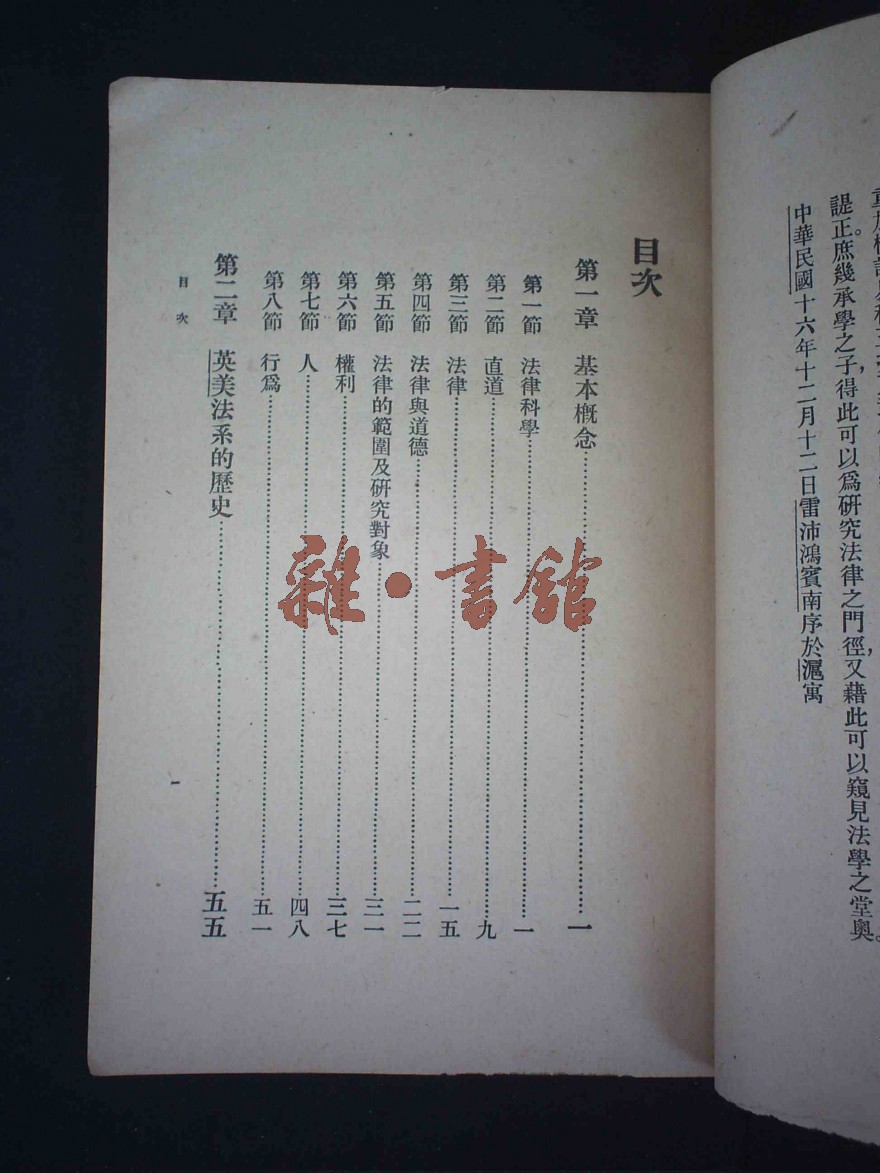 諟正。庶幾承學之子，得此可以爲研究法律之門徑，又藉此可以窺見法學之堂奧。
中華民國十六年十二月十二日雷沛鴻賓南序於滬寓
目次
第一章 基本概念……一
第一節 法律科學……一
第二節 直道……九
第三節 法律……一五
第四節 法律與道德……二二
第五節 法律的範圍及研究對象……三一
第六節 權利……三七
第七節 人……四八
第八節 行爲……五一
第二章 英美法系的歷史……五五
目次
一
雜·書館